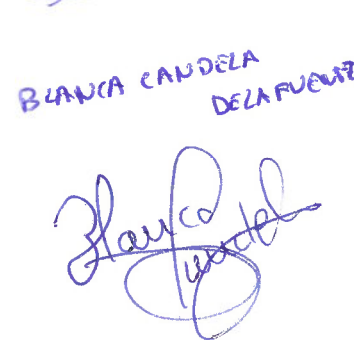 BLANCA CANDELA
DELAFUENTE
Blanca
Candela